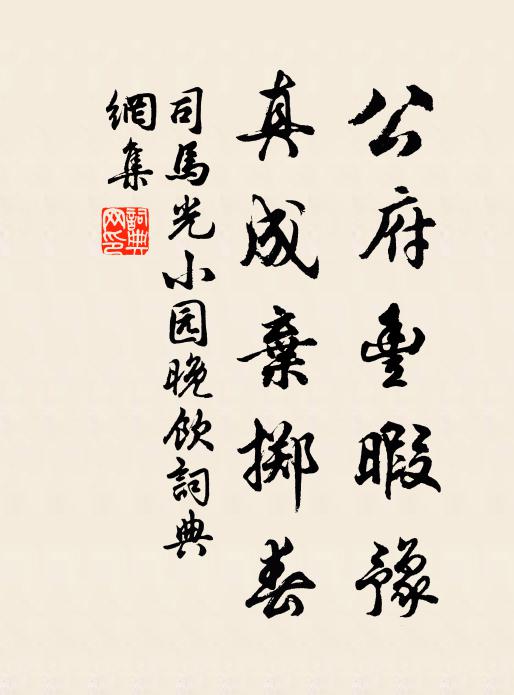 公府豊暇豫
真成棄掷春
司馬光小园晚飲詞典
網集
詞典
网印